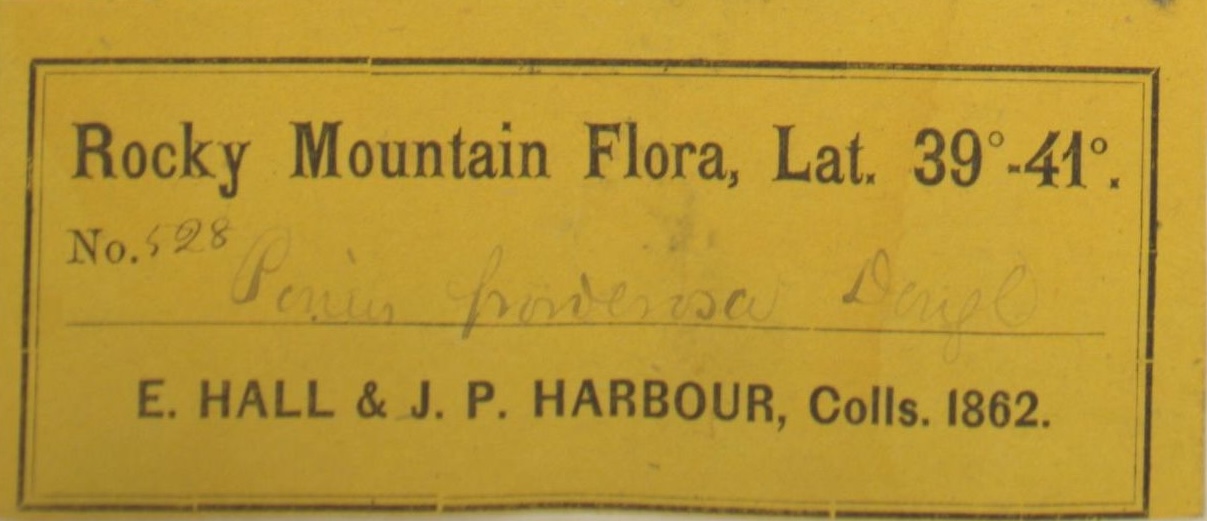 Rocky Mountain Flora, Lat. 39°-41°.
No. 528
Pinus ponderosa Dougl
E. HALL & J. P. HARBOUR, Colls. 1862.